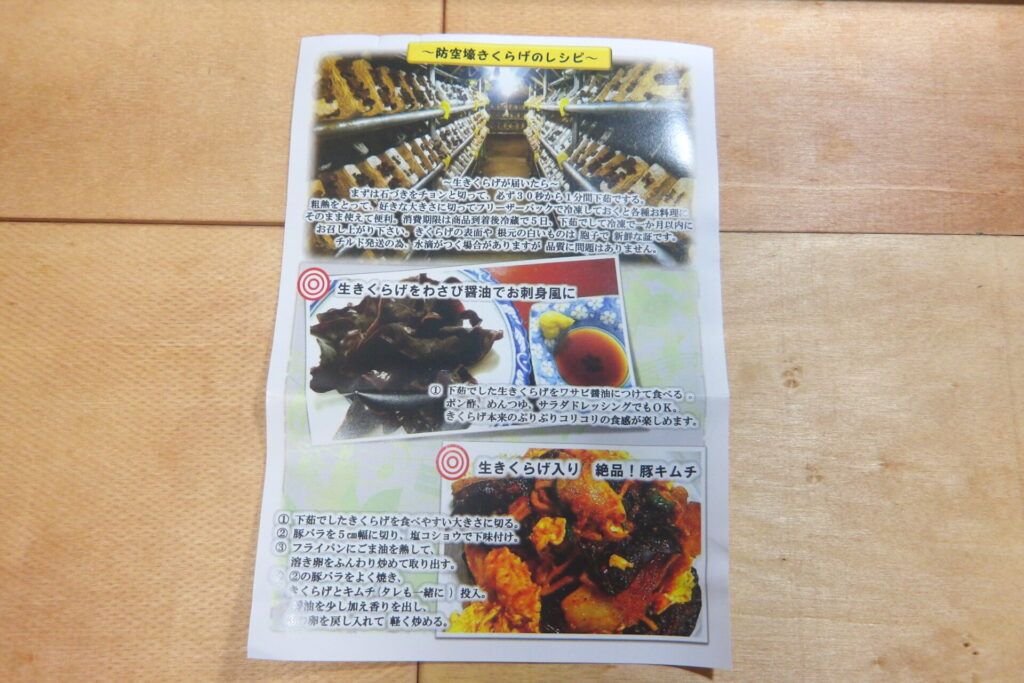 ～防空壕きくらげのレシピ～
～生きくらげが届いたら～
まずは石づきをチョンと切って、必ず３０秒から１分間下茹でする。
粗熱をとって、好きな大きさに切ってフリーザーパックで冷凍しておくと各種お料理に
そのまま使えて便利。消費期限は商品到着後冷蔵で５日、下茹でして冷凍で一か月以内に
お召し上がり下さい。きくらげの表面や 根元の白いものは 胞子で 新鮮な証です。
チルド発送の為、水滴がつく場合がありますが 品質に問題はありません。
生きくらげをわさび醤油でお刺身風に
① 下茹でした生きくらげをワサビ醤油につけて食べる。
ポン酢、めんつゆ、サラダドレッシングでもＯＫ。
きくらげ本来のぷりぷりコリコリの食感が楽しめます。
生きくらげ入り 絶品！豚キムチ
① 下茹でしたきくらげを食べやすい大きさに切る。
② 豚バラを５㎝幅に切り、塩コショウで下味付け。
③ フライパンにごま油を熱して、
溶き卵をふんわり炒めて取り出す。
②の豚バラをよく焼き、
きくらげとキムチ(タレも一緒に) 投入。
油を少し加え香りを出し、
の卵を戻し入れて 軽く炒める。